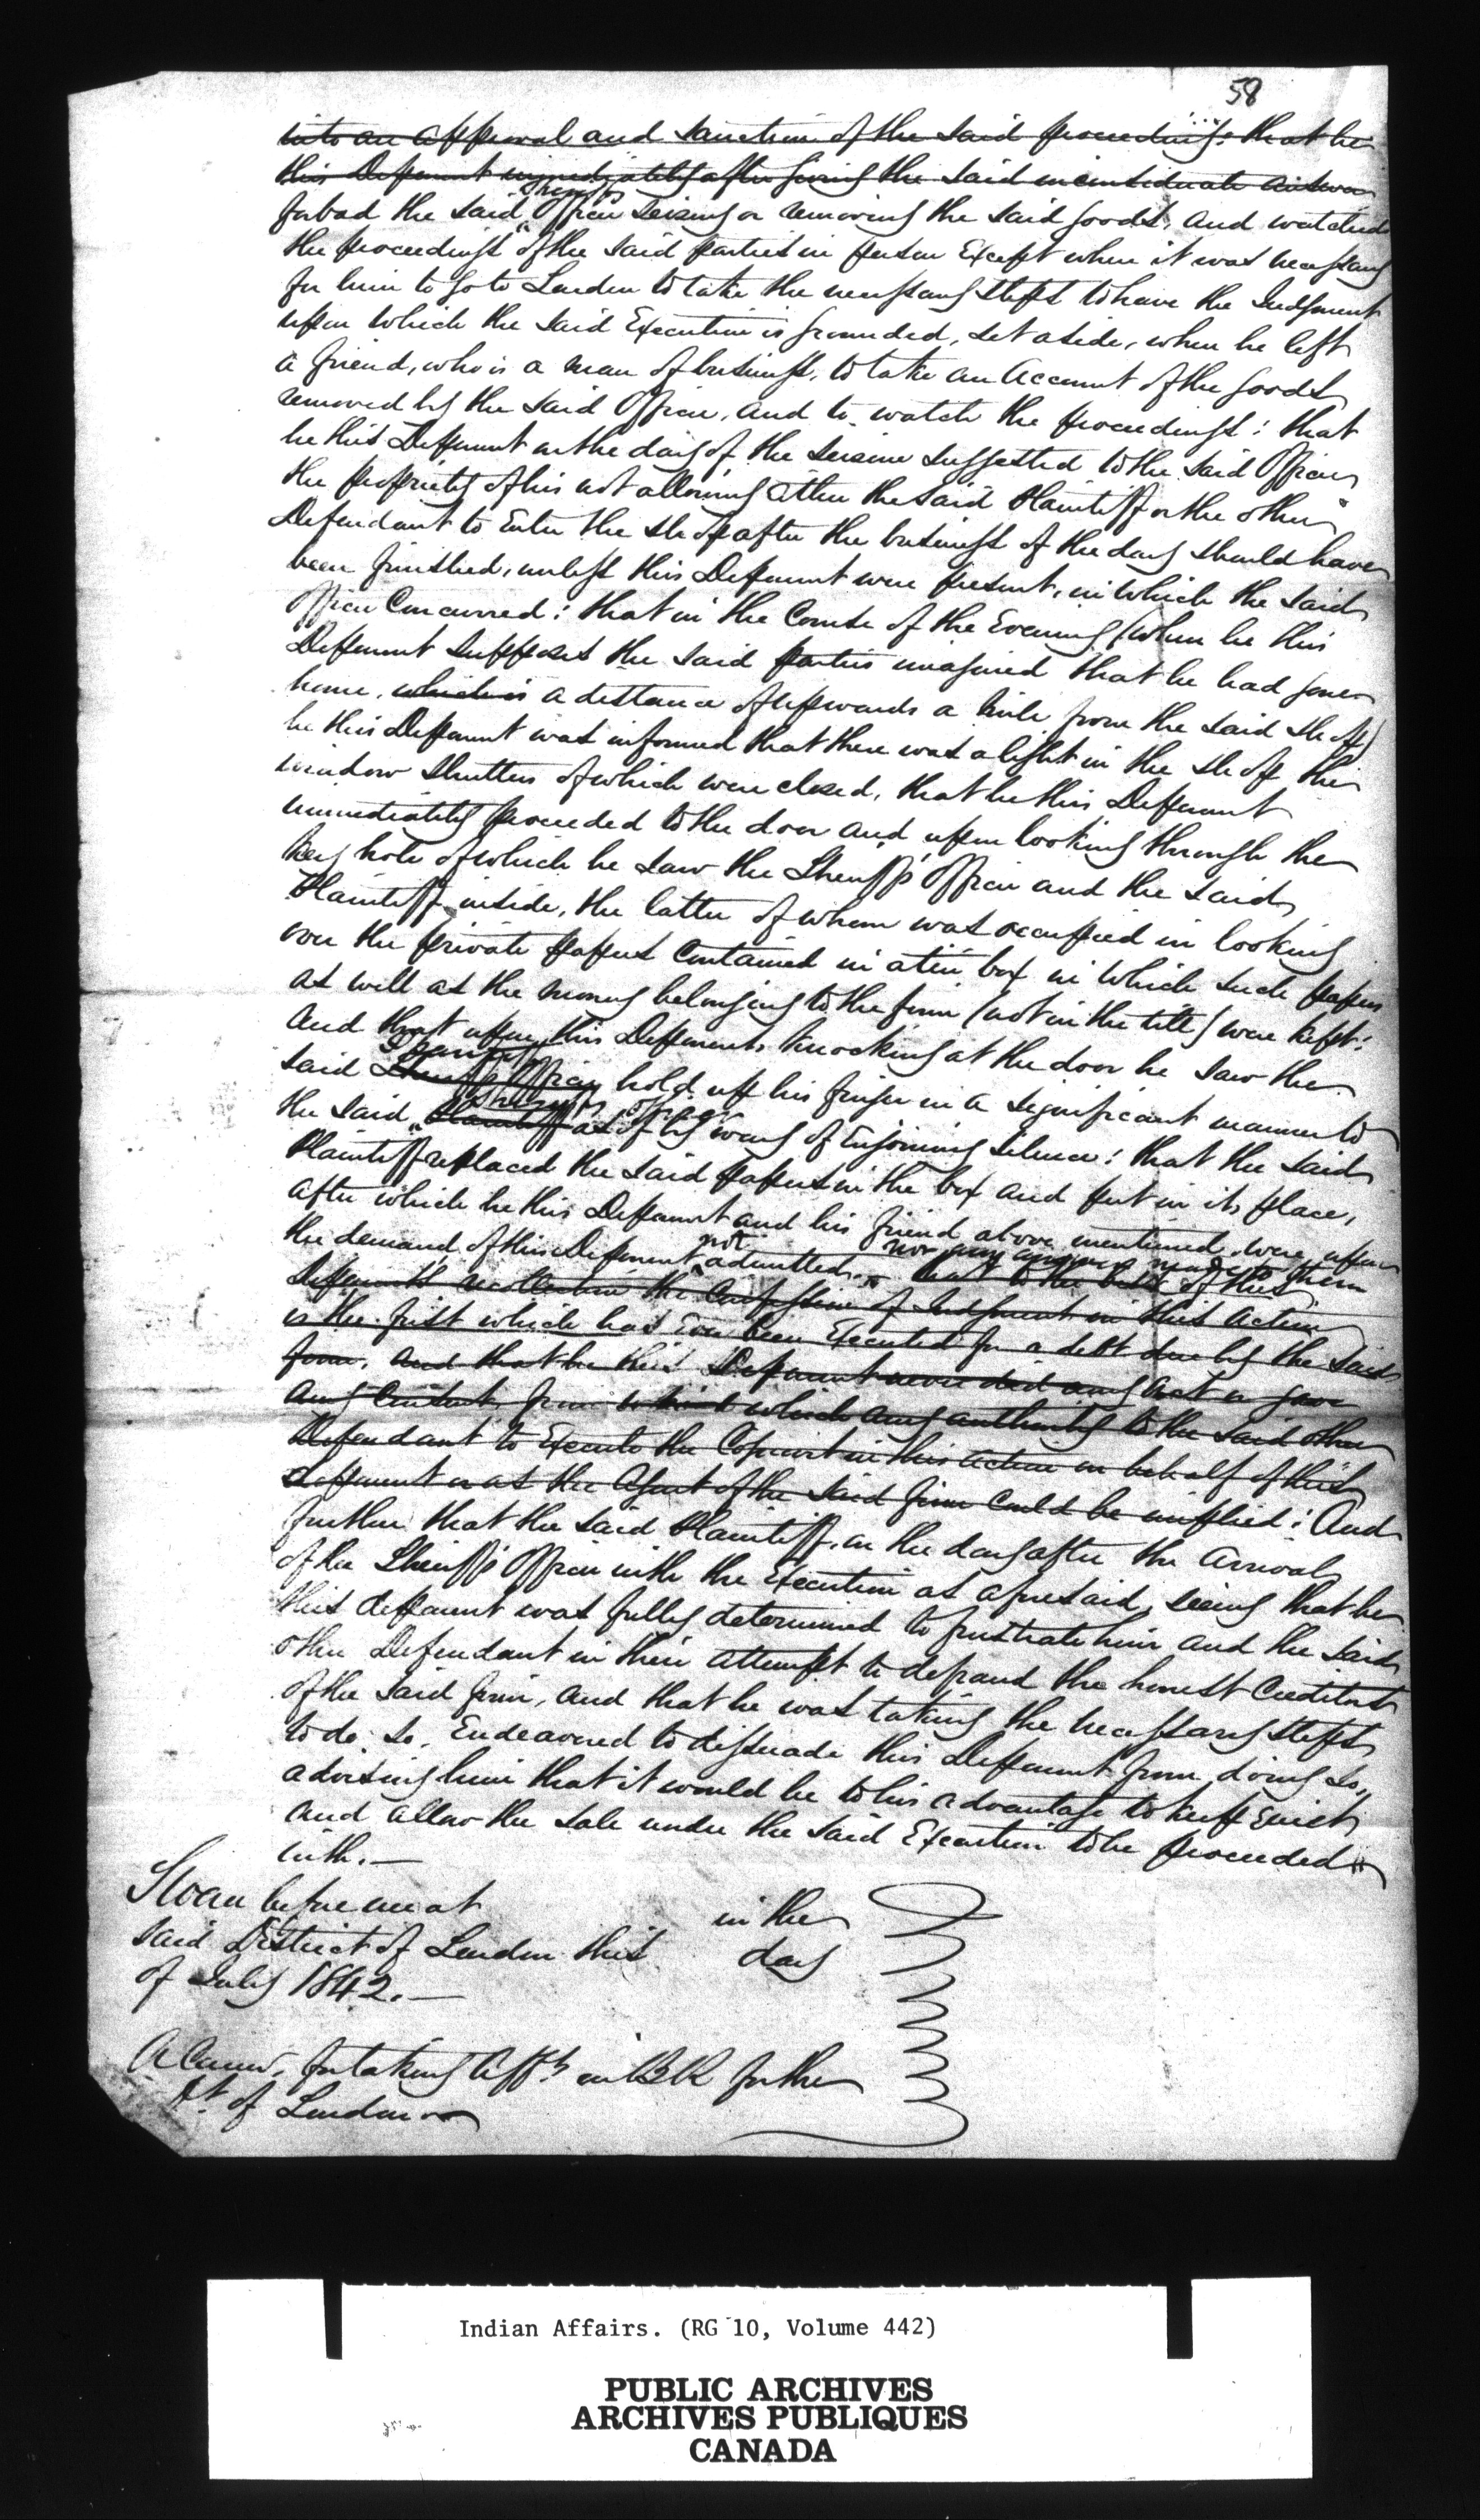 58
into an approval and sanction of the said proceedings: that he
this Deponent immediately after giving the said inconsiderate answer
Sheriffs
forbad the said Officer seizing or removing the said goods, and watched
the proceedings of the said parties in person Except when it was necessary
for him to go to London to take the necessary steps to have the Judgment
upon which the said Execution is grounded, set aside, when he left
a friend, who is a man of business, to take an Account of the goods
removed by the said Officer, and to watch the proceedings: that
he this Deponent on the day of the seizure suggested to the said Officer
the propriety of his not allowing either the said Plaintiff or the other
Defendant to Enter the shop after the business of the day should have
been finished, unless this Deponent were present, in which the said
Officer Concurred: that in the Course of the Evening (when he this
Deponent supposes the said parties imagined that he had gone
home, which is a distance of upwards a mile from the said shop)
he this Deponent was informed that there was a light in the shop the
window shutters of which were closed, that he this Deponent
immediately proceeded to the door and upon looking through the
key hole of which he saw the Sheriff's Officer and the said
Plaintiff inside, the latter of whom was occupied in looking
over the private papers contained in a tin box in which such papers
as well as the money belonging to the firm (not in the till) were kept:
and that upon this Deponents knocking at the door he saw the
Plaintiff
said Sheriffs Officer hold up his finger in a significant manner to
Sheriffs Officer
the said Plaintiff as if by way of Enjoining silence: that the said
Plaintiff replaced the said papers in the box and put in its place,
after which he this Deponent and his friend above mentioned were upon
not nor any answer made to them
the demand of this Deponent admitted. that to the best of this
Deponents recollection the Confession of Judgment in this action
is the first which has Ever been Executed for a debt due by the said
firm, and that he this Deponent never did any act or gave
any Consent from which any authority to the said other
Defendant to Execute the Cognovit in this action on behalf of this
Deponent or as the Agent of the said firm Could be implied: And
further that the said Plaintiff, on the day after the arrival
of the Sheriffs Officer with the Execution as aforesaid, seeing that he
this deponent was fully determined to frustrate him and the said
other Defendant in their attempt to defraud the honest Creditors
of the said firm, and that he was taking the necessary steps
to do so, Endeavored to dissuade this Deponent from doing so,
advising him that it would be to his advantage to keep quiet
and allow the sale under the said Execution to be proceeded
with.—
Sworn before me at in the
said District of London this day
of July 1842.—
A Commr. for taking Affts in BR for the
Dt. of London
Indian Affairs. (RG 10, Volume 442)
PUBLIC ARCHIVES
ARCHIVES PUBLIQUES
CANADA